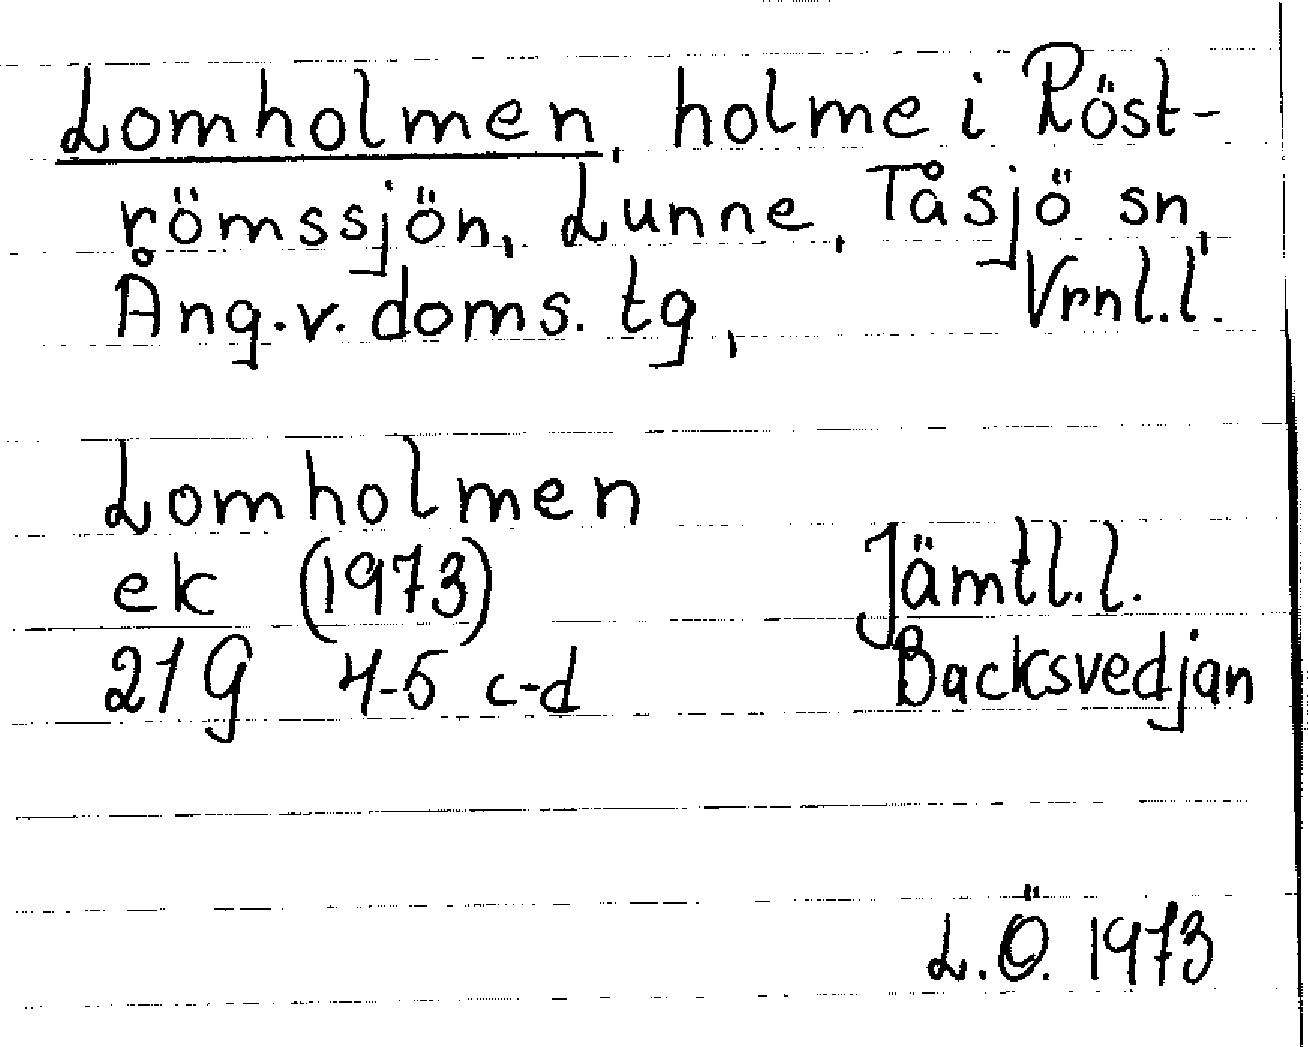 Lomholmen, holme i Röst-
römssjön, Lunne, Tåsjö sn,
Ång.v. doms. tg, Vrnl.l.
Lomholmen
ek (1973) Jämtl.l.
21G 4-5 c-d Backsvedjan
L.Ö. 1973